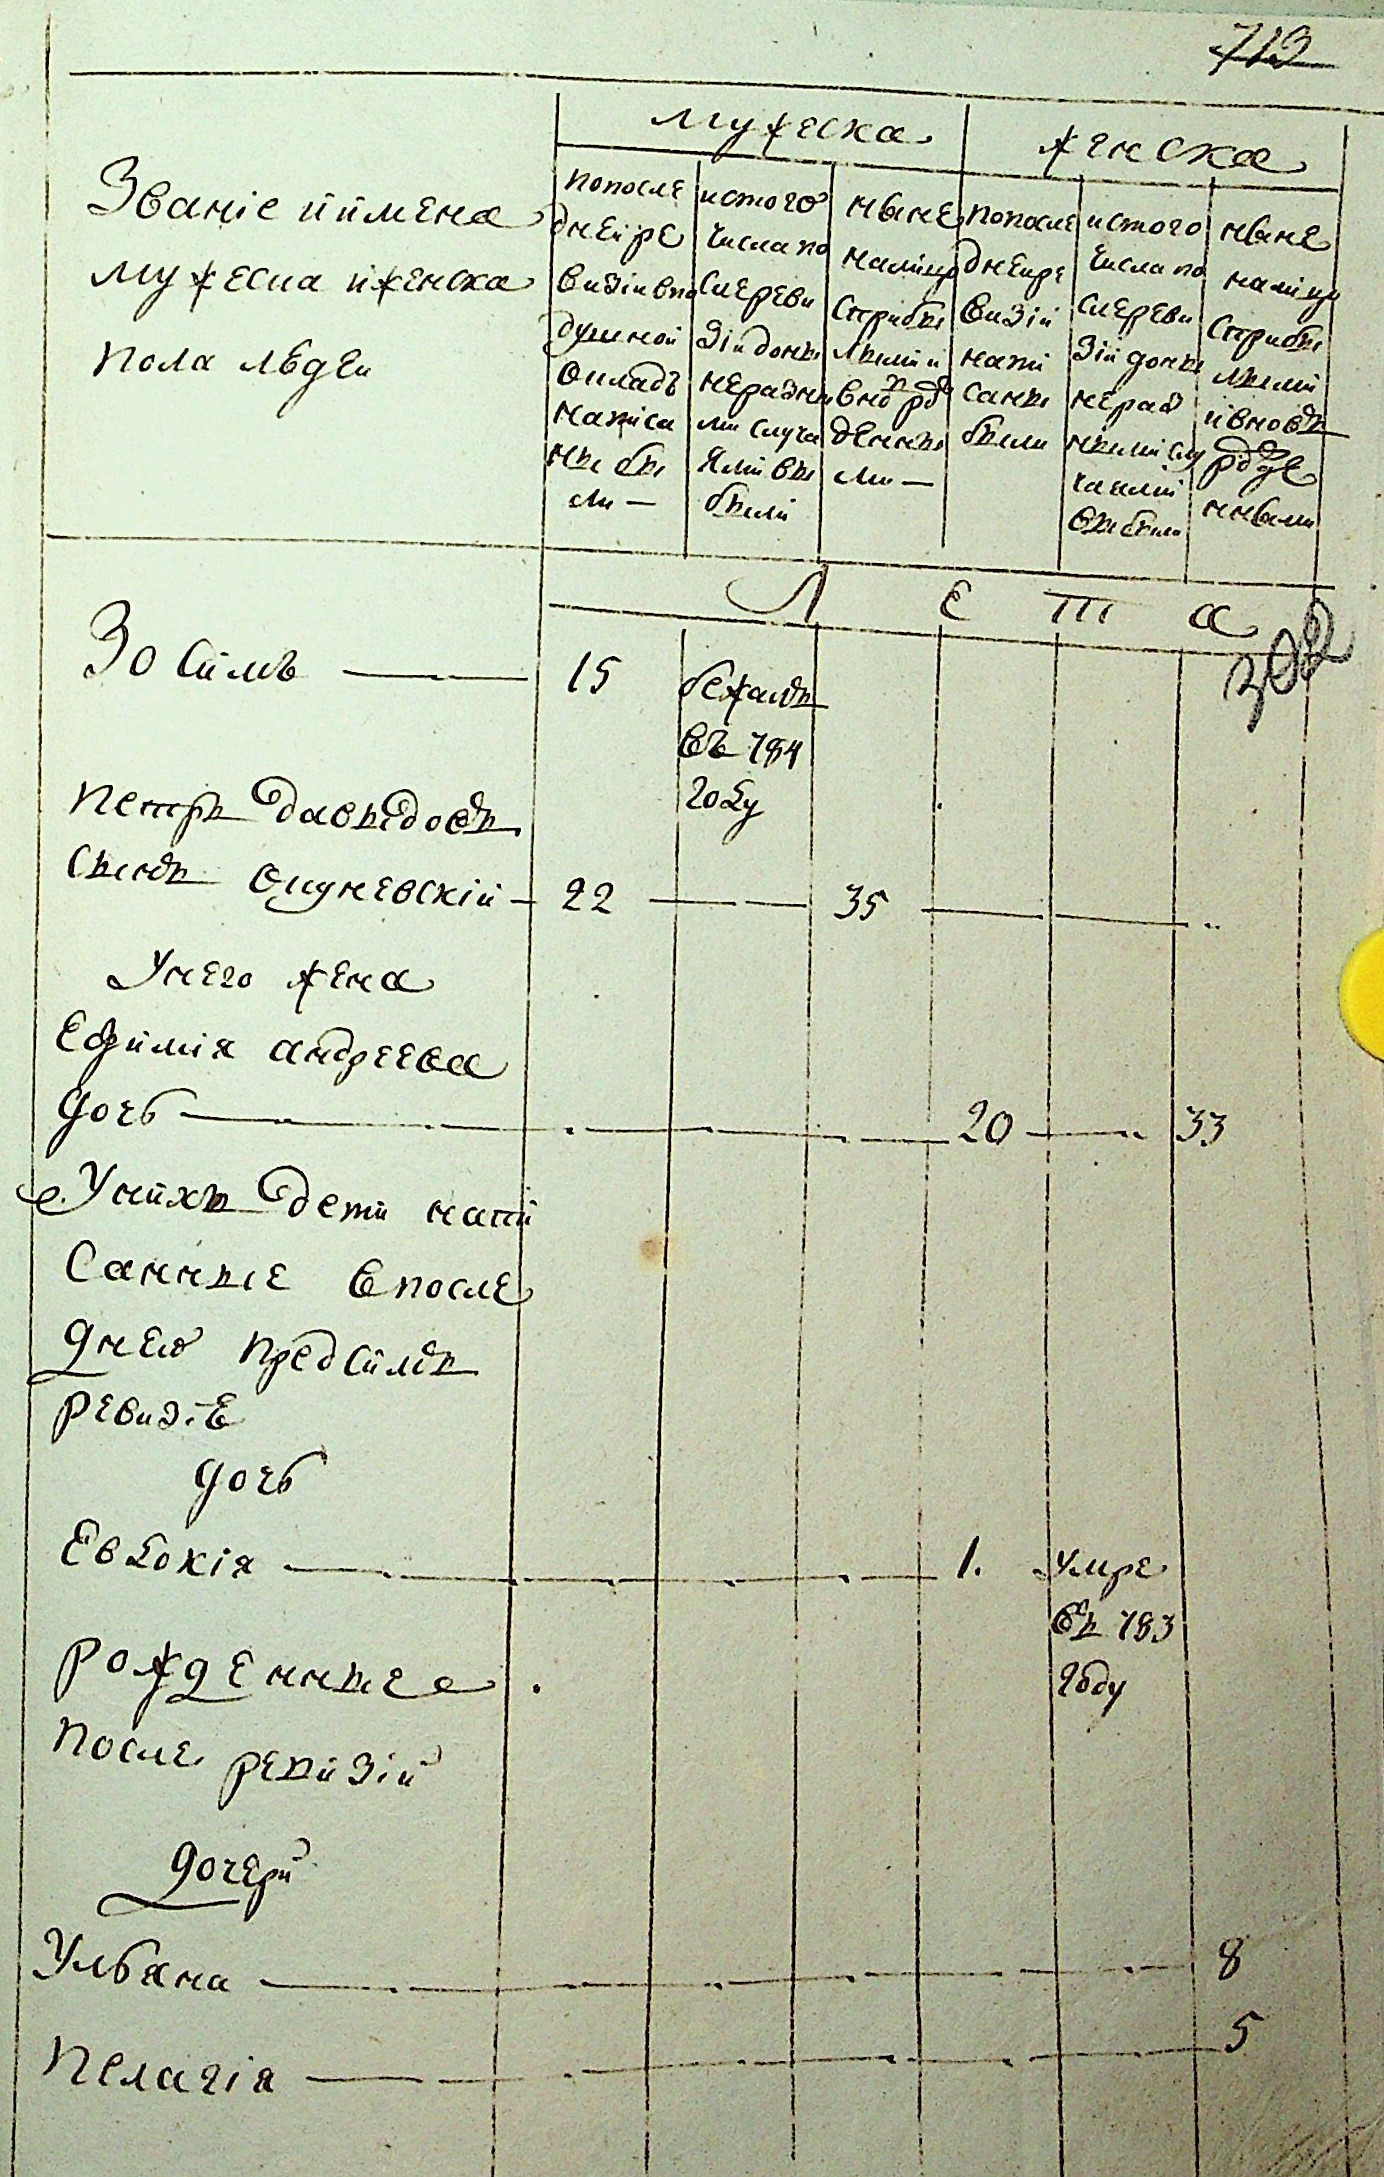 713
мужеска
женска
Званіе и имена
мужеска и женска
пола людей
попосле
дней ре
визіи впо
душной
окладъ
напіса
ны бы
ли —
истого
числа по
сле реви
зіи доны
не разны
ми случа
ями вы
были
ныне
налицо
старые
лыми и
внов рож
денны
ми —
попосле
дней ре
визій
напи
саны
были
истого
числа по
сле реви
зій доны
не раз
ными слу
чаями
выбыло
ныне
налицо
стары
лыми
и вновь
рожде
нными
Л Е Т А
302
Зосимъ — 15
бежалъ
въ 784
году
Петръ Давыдовъ
сынъ Окуневскій — 22 — — 35 — — ..
У него жена
Ефимія Андреева
дочь — 20 — 33
У нихъ дети напи
санные в после
днею предъ симъ
ревизіе
дочь
Евдокія — 1. умре
въ 783
году
рожденные
после ревизій
дочери
Ульяна — 8
Пелагія — 5